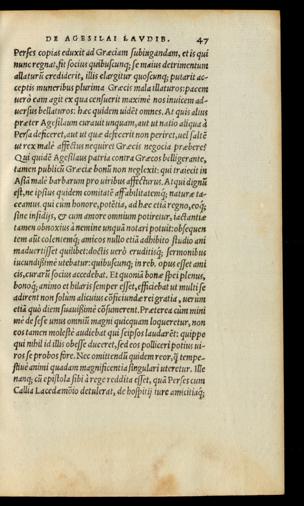 DE AGESILAI LAVDIB. 47
Perses copias eduxit ad Græciam subingandam, et is qui
nunc regnat, fit socius quibuscunq; se maius detrimentum
allaturũ crediderit, illis elargitur quoscunq; putarit ac-
ceptis muneribus plurima Græcis mala illaturos: pacem
uerò eam agit ex qua censuerit maxime nos inuicem ad-
uersus bellaturos: hæc quidem uidẽt omnes. At quis alius
præter Agesilaum curauit unquam, aut ut natio aliqua à
Persa deficeret, aut ut quæ defecerit non periret, uel saltẽ
ut rex malè affectus nequiret Græcis negocia præbere?
Qui quidẽ Agesilaus patria contra Græcos belligerante,
tamen publicũ Græciæ bonũ non neglexit: qui traiecit in
Asiã malè barbarum pro uiribus affecturus. At qui dignũ
est, ne ipsius quidem comitatẽ affabilitatemq; naturæ ta-
ceamus. qui cum honore, potẽtia, ad hæc etiã regno, eoq;
sine insidijs, & cum amore omnium potiretur, iactantiæ
tamen obnoxius à nemine unquã notari potuit: obsequen
tem aũt colentemq; amicos nullo etiã adhibito studio ani
maduertisset quilibet: doctis uerò eruditisq; sermonibus
iucundissime utebatur: quibuscunq; in reb. opus esset ami
cis, curarũ socius accedebat. Et quoniã bonæ spei plenus,
bonoq; animo et hilaris semper esset, efficiebat ut multi se
adirent non solùm alicuius cõficiundæ rei gratia, uerum
etiã quò diem suauissimè cõsumerent. Præterea cùm mini
mè de sese unus omniũ magni quicquam loqueretur, non
eos tamen molestè audiebat qui seipsos laudarẽt: quippe
qui nihil id illis obesse duceret, sed eos polliceri potius ui-
ros se probos fore. Nec omittendũ quidem reor, q̃ tempe-
stiuè animi quadam magnificentia singulari uteretur. Ille
nanq; cũ epistola sibi à rege reddita esset, quã Perses cum
Callia Lacedæmõio detulerat, de hospitij iure amicitiaq;